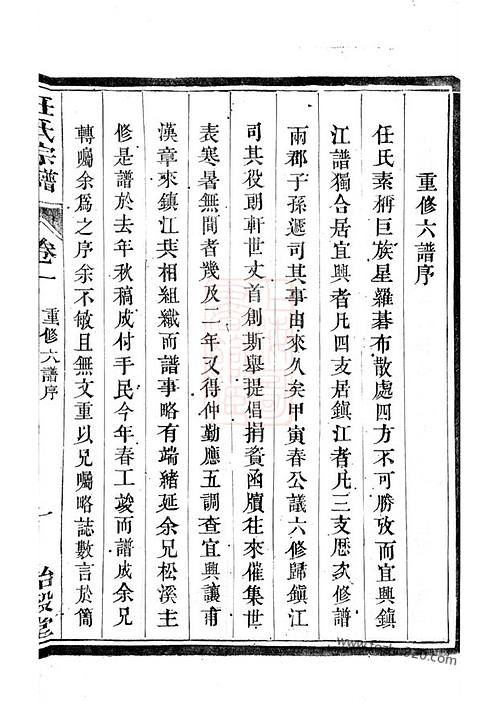 重修六譜序
任氏素稱巨族星羅碁布散處四方不可勝攷而宜興鎮
江譜獨合居宜興者凡四支居鎮江者凡三支歷次修譜
兩郡子孫遞司其事由來久矣甲寅春公議六修歸鎮江
司其役朝軒世丈首創斯舉提倡捐資函牘往來催集世
表寒暑無間者幾及二年又得仲勤應五調查宜興讓甫
漢章來鎮江共相組織而譜事略有端緒延余兄松溪主
修是譜於去年秋稿成付手民今年春工竣而譜成余兄
轉囑余為之序余不敏且無文重以兄囑略誌數言於簡
任氏宗譜
卷一
重修六譜序
一
貽穀堂